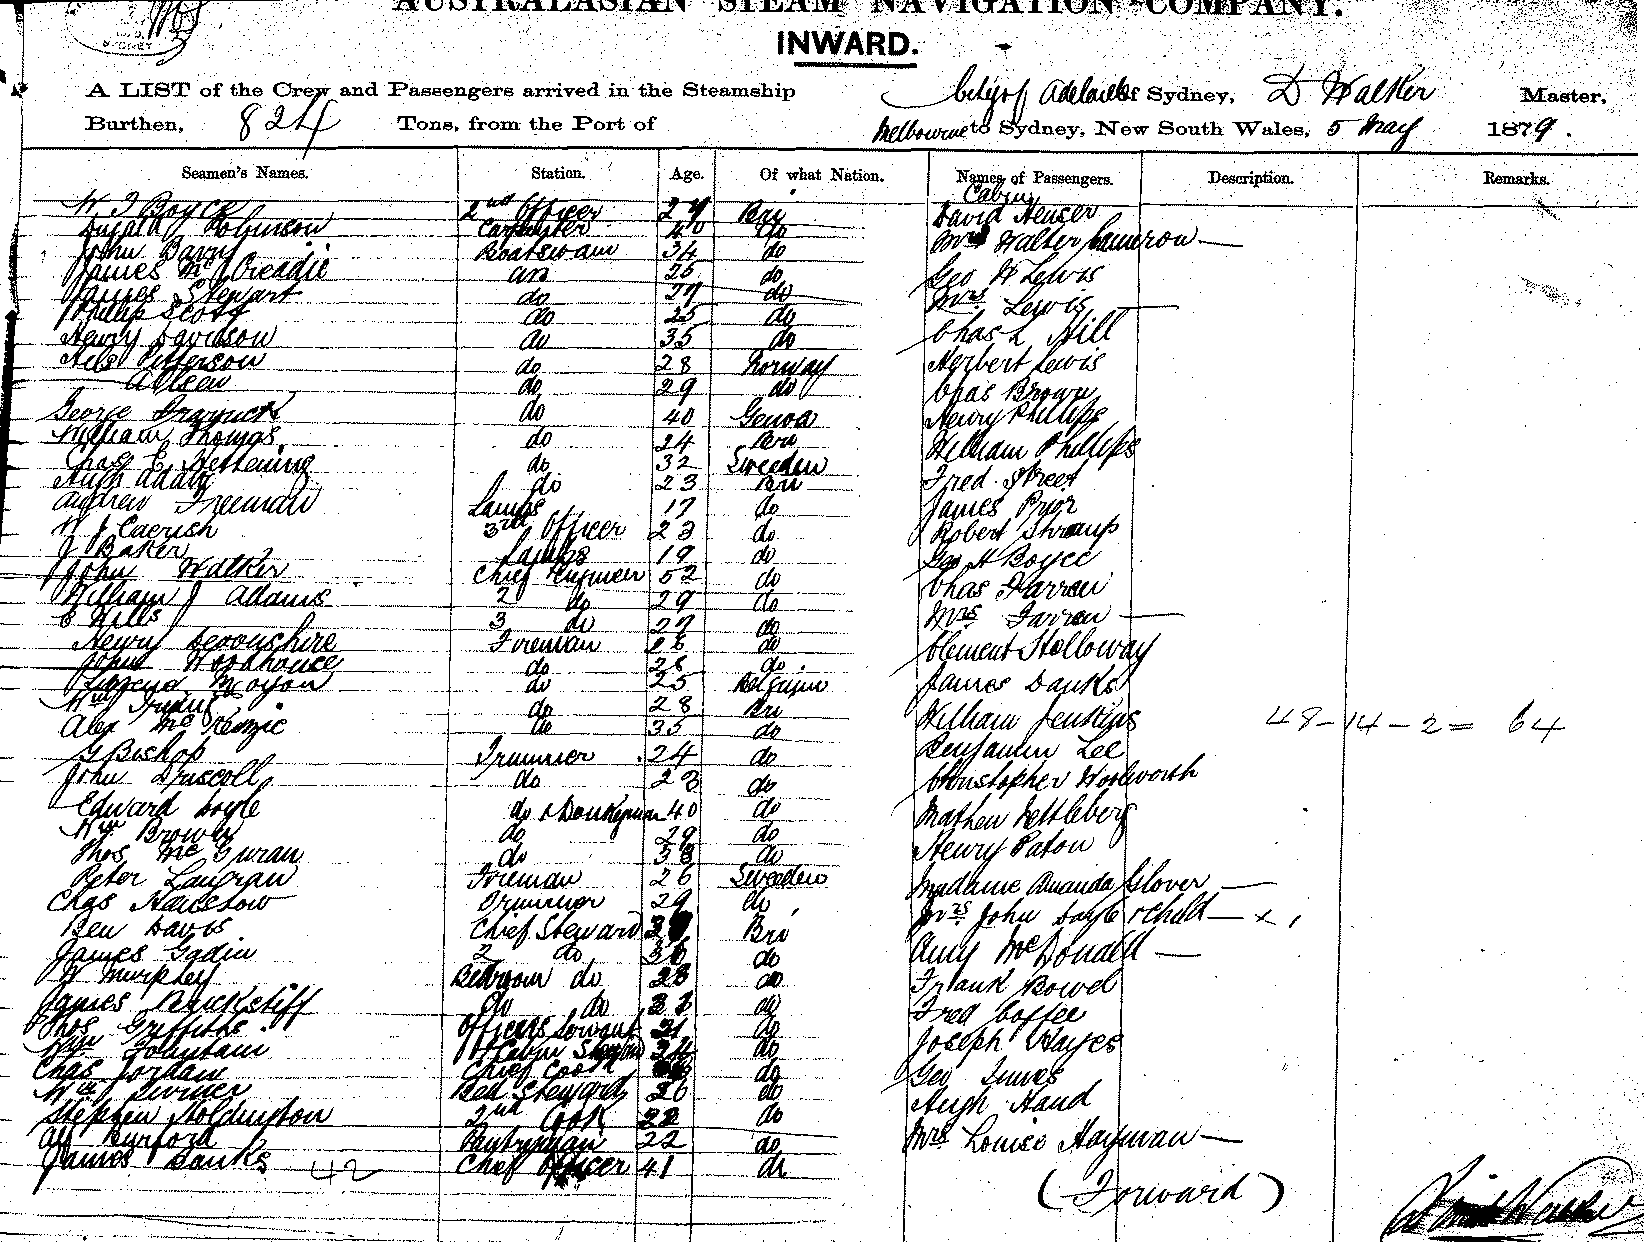 AUSTRALASIAN STEAM NAVIGATION COMPANY.
INWARD.
A LIST of the Crew and Passengers arrived in the Steamship City of Adelaide Sydney, D Walker Master,
Burthen, 824 Tons, from the Port of Melbourne to Sydney, New South Wales, 5 May 1879.
Seamen's Names. Station. Age. Of what Nation. Names of Passengers. Description. Remarks.
Cabin
W J Boyce 2nd Officer 27 David Heuser
Dugald Robinson Carpenter 40 do Mrs Walter Cameron —
John Barry Boatswain 34 do
James McCreadie AB 25 do Geo H Lewis
James Stewart do 27 do Mrs Lewis —
Philip Scott do 25 do
Henry Davidson do 35 do Chas L Hill
Nils Petterson do 28 Norway Herbert Lewis
Allsen do 29 do Chas Brown
George do 40 Genoa Henry Phillips
William Thomas do 24 Bri William Phillips
Chas E do 32 Sweeden
Hugh Adair do 23 Bri Fred Street
Andrew Freeman Lamps 17 do James Pryor
W J 3rd Officer 23 do Robert
J Baker Lamps 19 do Geo H Boyce
John Walker Chief Engineer 52 do Chas Farren
William J Adams 2 do 29 do
C Hills 3 do 27 do Mrs Farren —
Henry Devonshire Fireman 26 do Clement Holloway
John Woodhouse do 28 do
Moyon do 25 Belgium James Danks
Wm do 28 Bri William Jenkins 48-14-2= 64
Alex McKenzie do 35 do
G Bishop Trimmer 24 do Benjamin Lee
John Driscoll do 23 do Christopher Woolworth
Edward Doyle do & Donkeyman 40 do Mathew Nettleberg
Wm Brown do 29 do
Thos McGuran do 38 do Henry Paton
Peter Langran Fireman 26 Sweeden Madame Amanda Glover —
Chas Hanslow Trimmer 29 do Mrs John Doyle & Child — x
Ben Davis Chief Steward Bri
James Gadin 2 do 36 do Amy McDonell —
W Murphy Bedroom do 28 do Frank Bowel
James do do do Fred Coffee
Thos Griffiths Officers Servant 21 do
Wm Fountain do Joseph Hayes
Chas Jordan Chief Cook do Geo
Wm Turner Bed Steward 26 do Hugh Hand
Stephen 2nd Cook 22 do
Alf Burford Pantryman 22 do Mrs Louise Hayman —
James Banks 42 Chief Officer 41 do
(Forward)